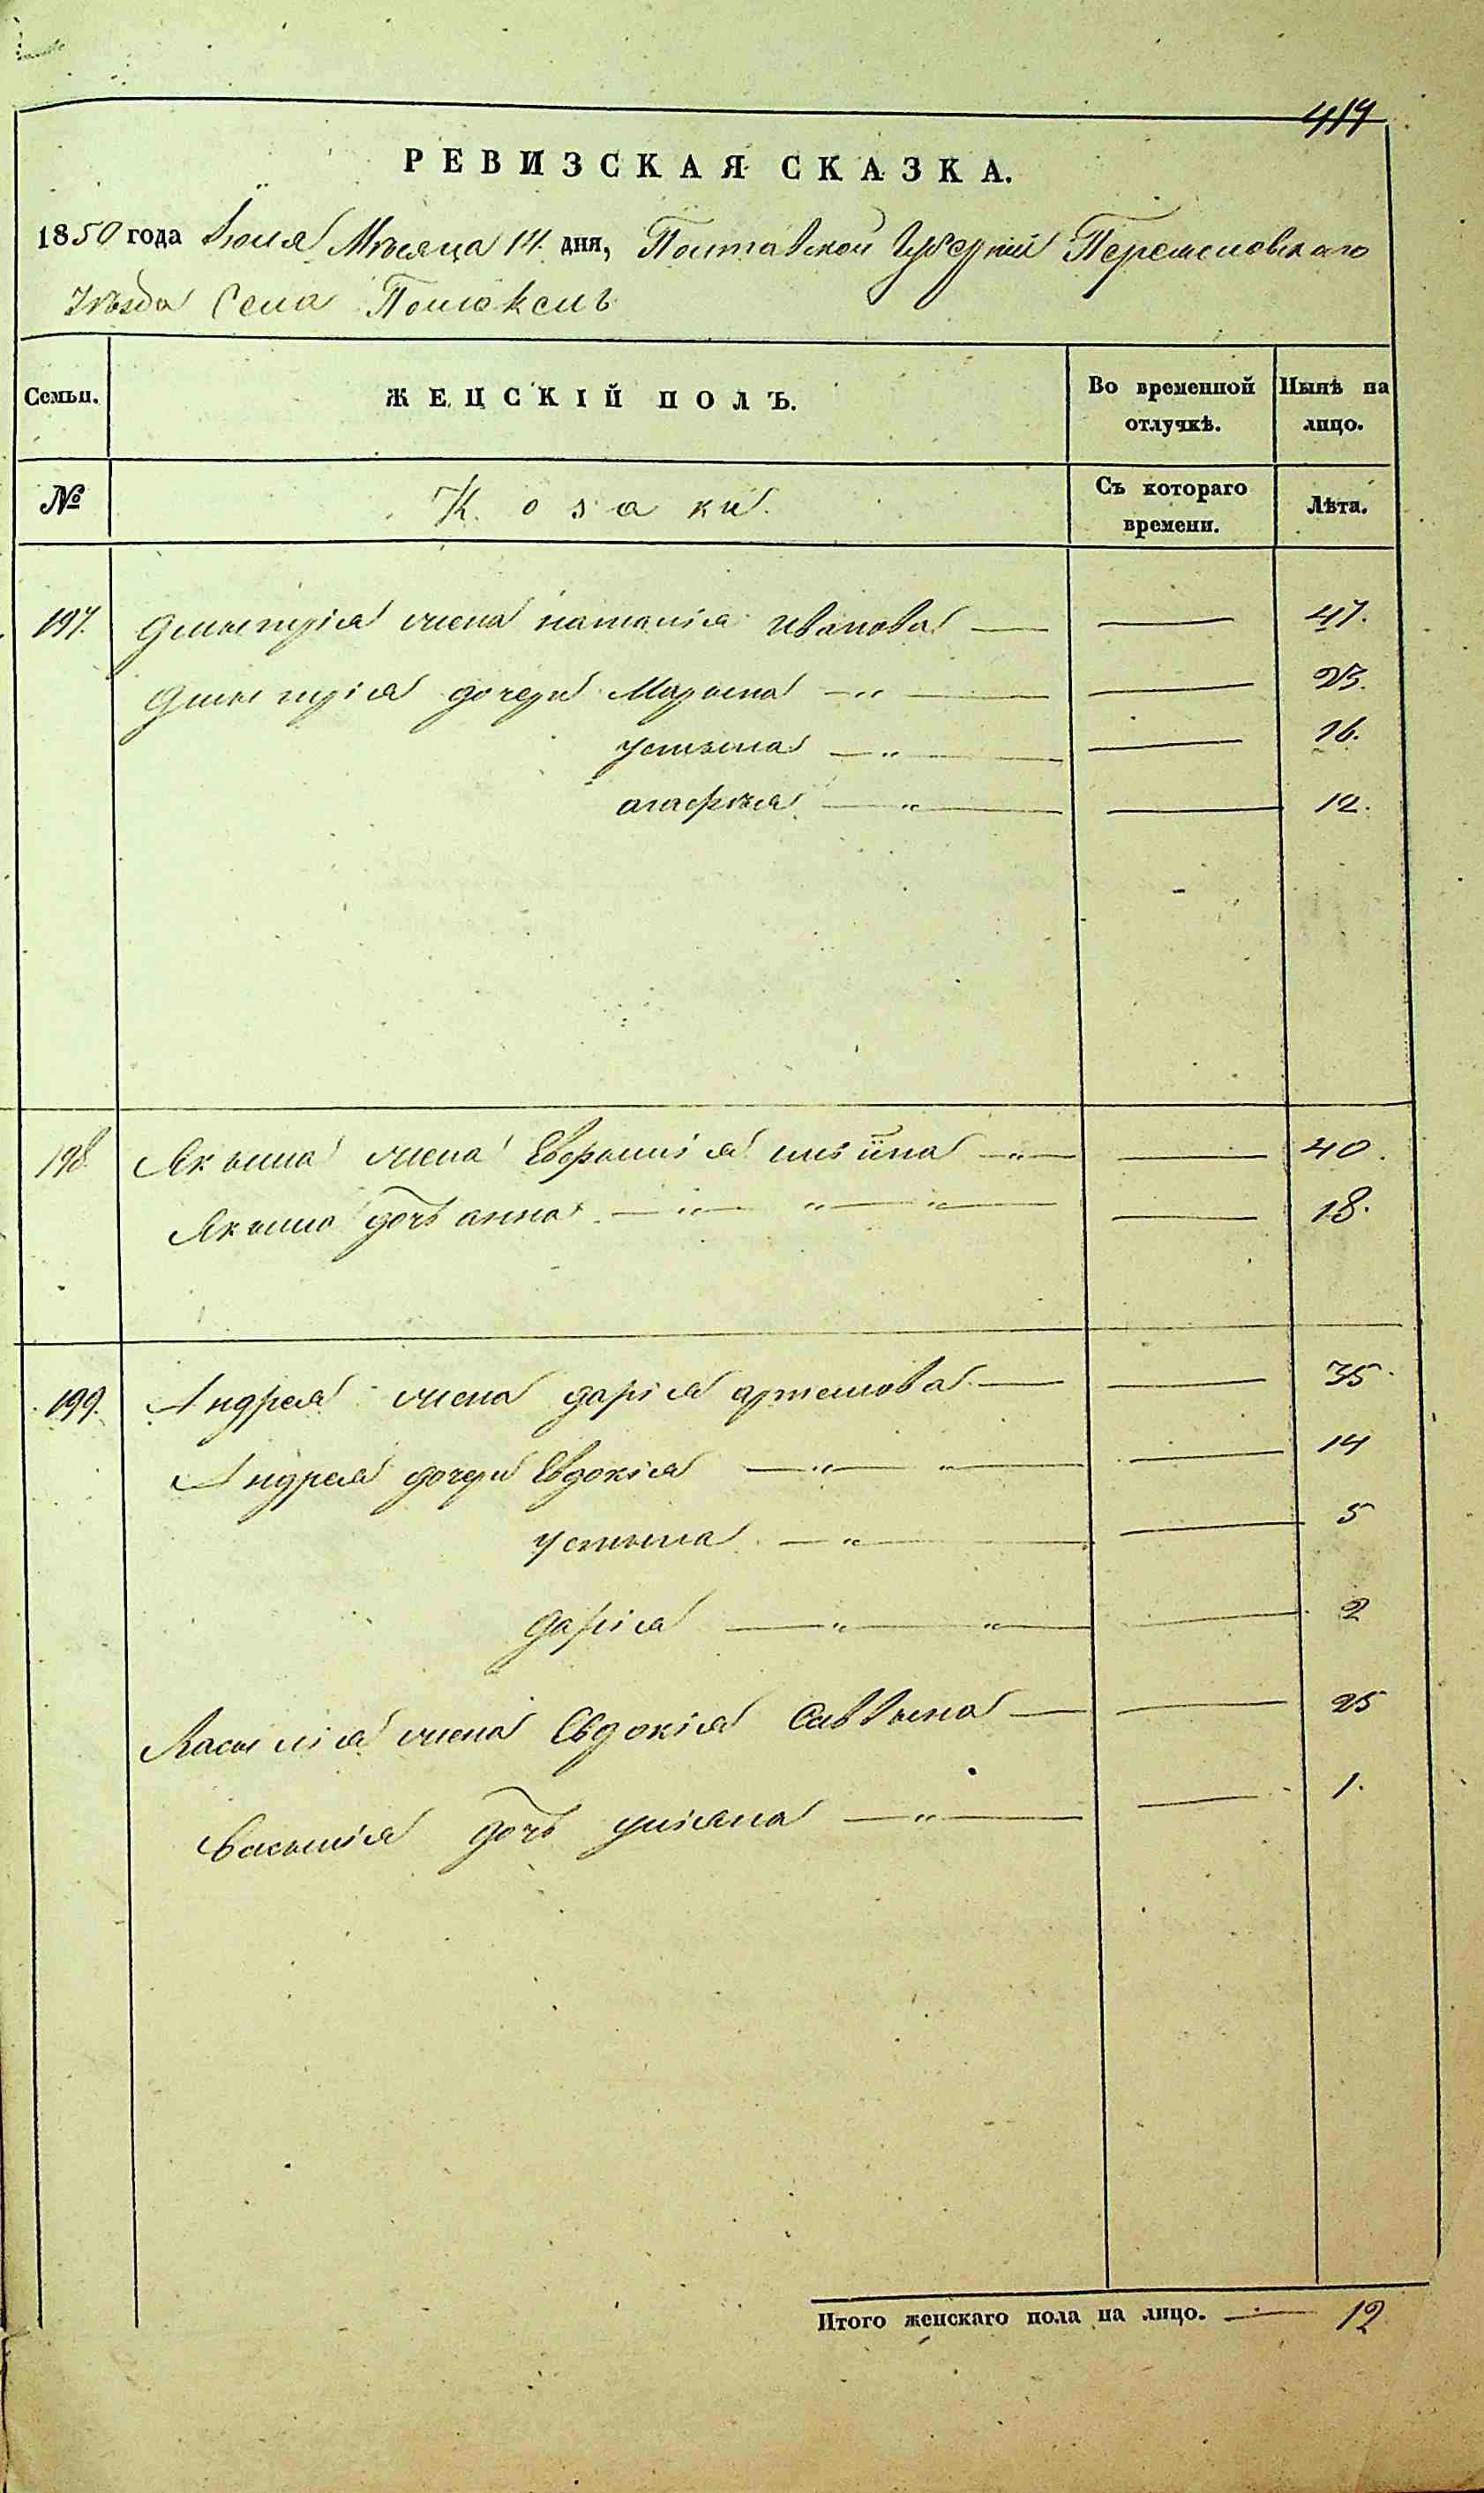 417
РЕВИЗСКАЯ СКАЗКА.
1850 года Іюля Мѣсяца 14. дня, Полтавской Губерніи Переяславскаго
Уѣзда Села Помоклъ
Семьи. ЖЕНСКІЙ ПОЛЪ. Во временной отлучкѣ. Нынѣ на лицо.
№ Козаки. Съ котораго времени. Лѣта.
197. Дмытрія жена наталія иванова — — 47.
Дмытрія дочери Марына — „ — — 23.
устына — „ — — 16.
агафія — „ — — 12.
198. Якыма жена Евфымія — „ — — 40.
Якыма дочь анна — „ — „ — „ — — 18.
199. Андрея жена дарія артемова — — 35
Андрея дочери Евдокія — „ — „ — — 14
устына — „ — — 5
дарія — „ — „ — — 2
Васылія жена Евдокія Саввына — — 25
Васылія дочь уліана — „ — — 1.
Итого женскаго пола на лицо. — 12